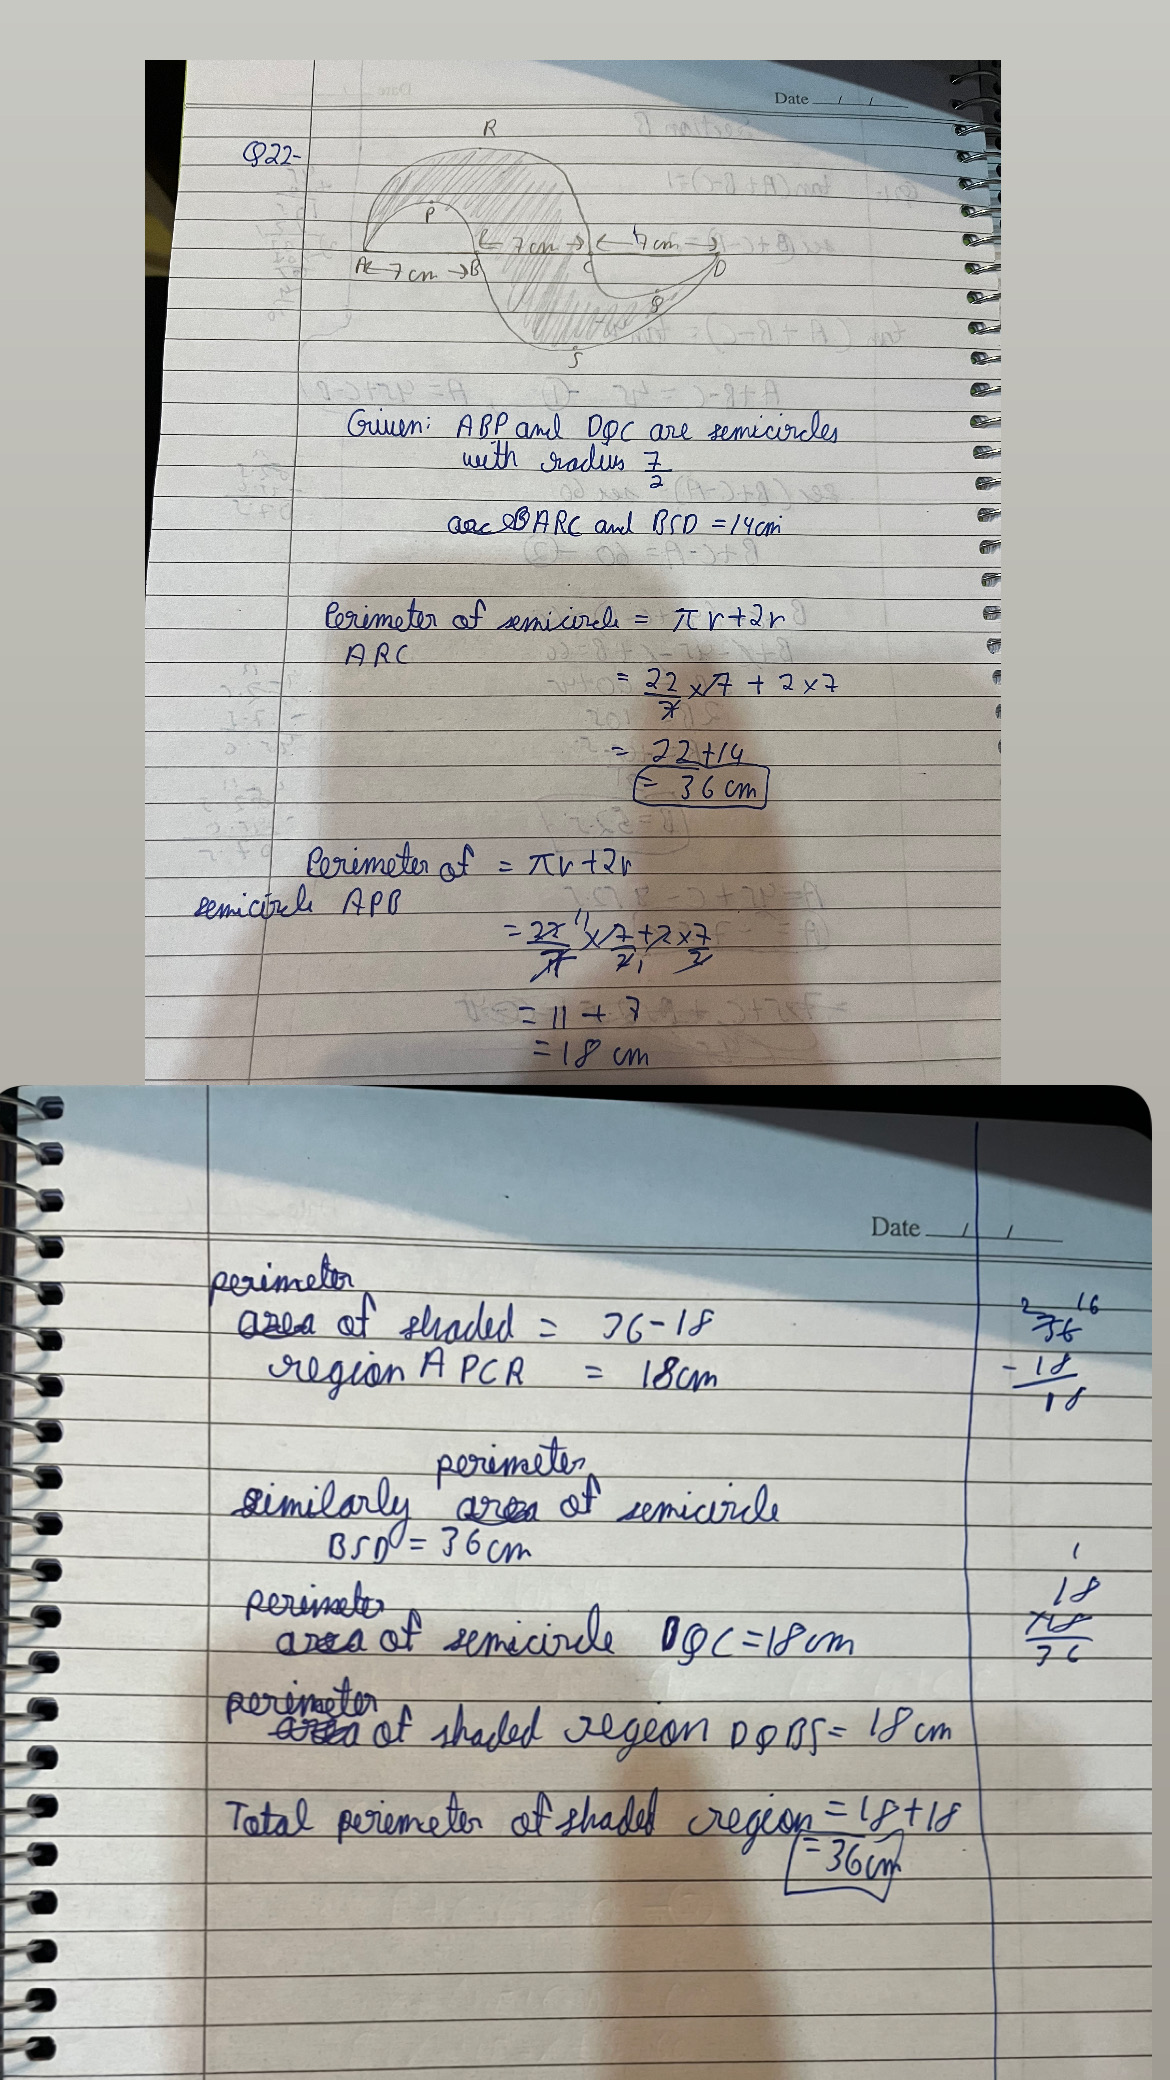 Date / /
R
Q22-
P
7 cm
7 cm
A
7 cm
B
C
D
Q
S
Given: ABP and DQC are semicircles
with radius 7/2
arc ARC and BSD = 14cm
Perimeter of semicircle = πr+2r
ARC
= 22/7 x 7 + 2 x 7
= 22+14
= 36 cm
Perimeter of = πr+2r
semicircle APB
= 22/7 11 x 7/2 1 + 2 x 7/2
= 11 + 7
= 18 cm
Date / /
perimeter
area of shaded = 36-18
region APCR = 18cm
2 16
36
- 18
18
perimeter
similarly area of semicircle
BSD = 36cm
perimeter
area of semicircle DQC = 18cm
1
18
+18
36
perimeter
area of shaded regeon DQBS = 18 cm
Total perimeter of shaded regeon = 18+18
= 36cm